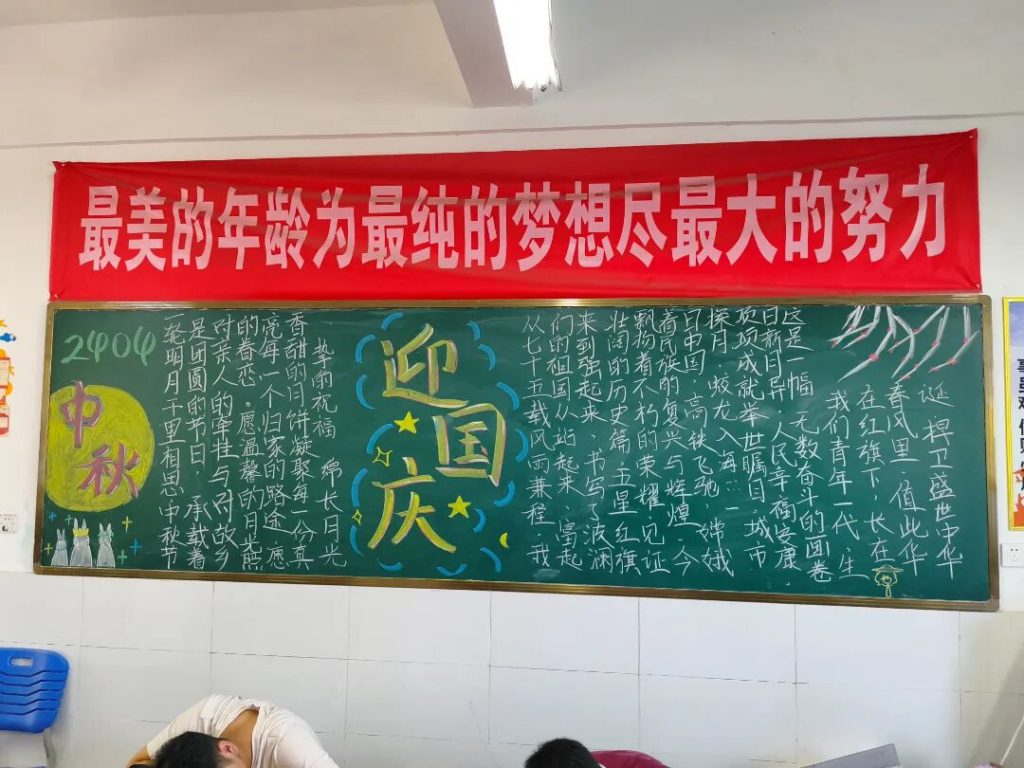 最美的年龄为最纯的梦想尽最大的努力
2404
中秋
一轮明月千里相思中秋节
是团圆的节日，承载着
对亲人的牵挂与对故乡
的眷恋。愿温馨的月光照
亮每一个归家的路途愿
香甜的月饼凝聚每一份真
挚的祝福 绵长月光
迎国庆
从七十五载风雨兼程，我
们的祖国从站起来、富起
来到强起来，书写了波澜
壮阔的历史篇，五星红旗
飘扬着不朽的荣耀，见证
着民族的复兴与辉煌，今
日中国，高铁飞驰、嫦娥
探月、蛟龙入海……
项项成就举世瞩目，城市
日新月异，人民幸福安康，
这是一幅无数奋斗的画卷
我们青年一代，生
在红旗下，长在
春风里，值此华
诞，捍卫盛世中华